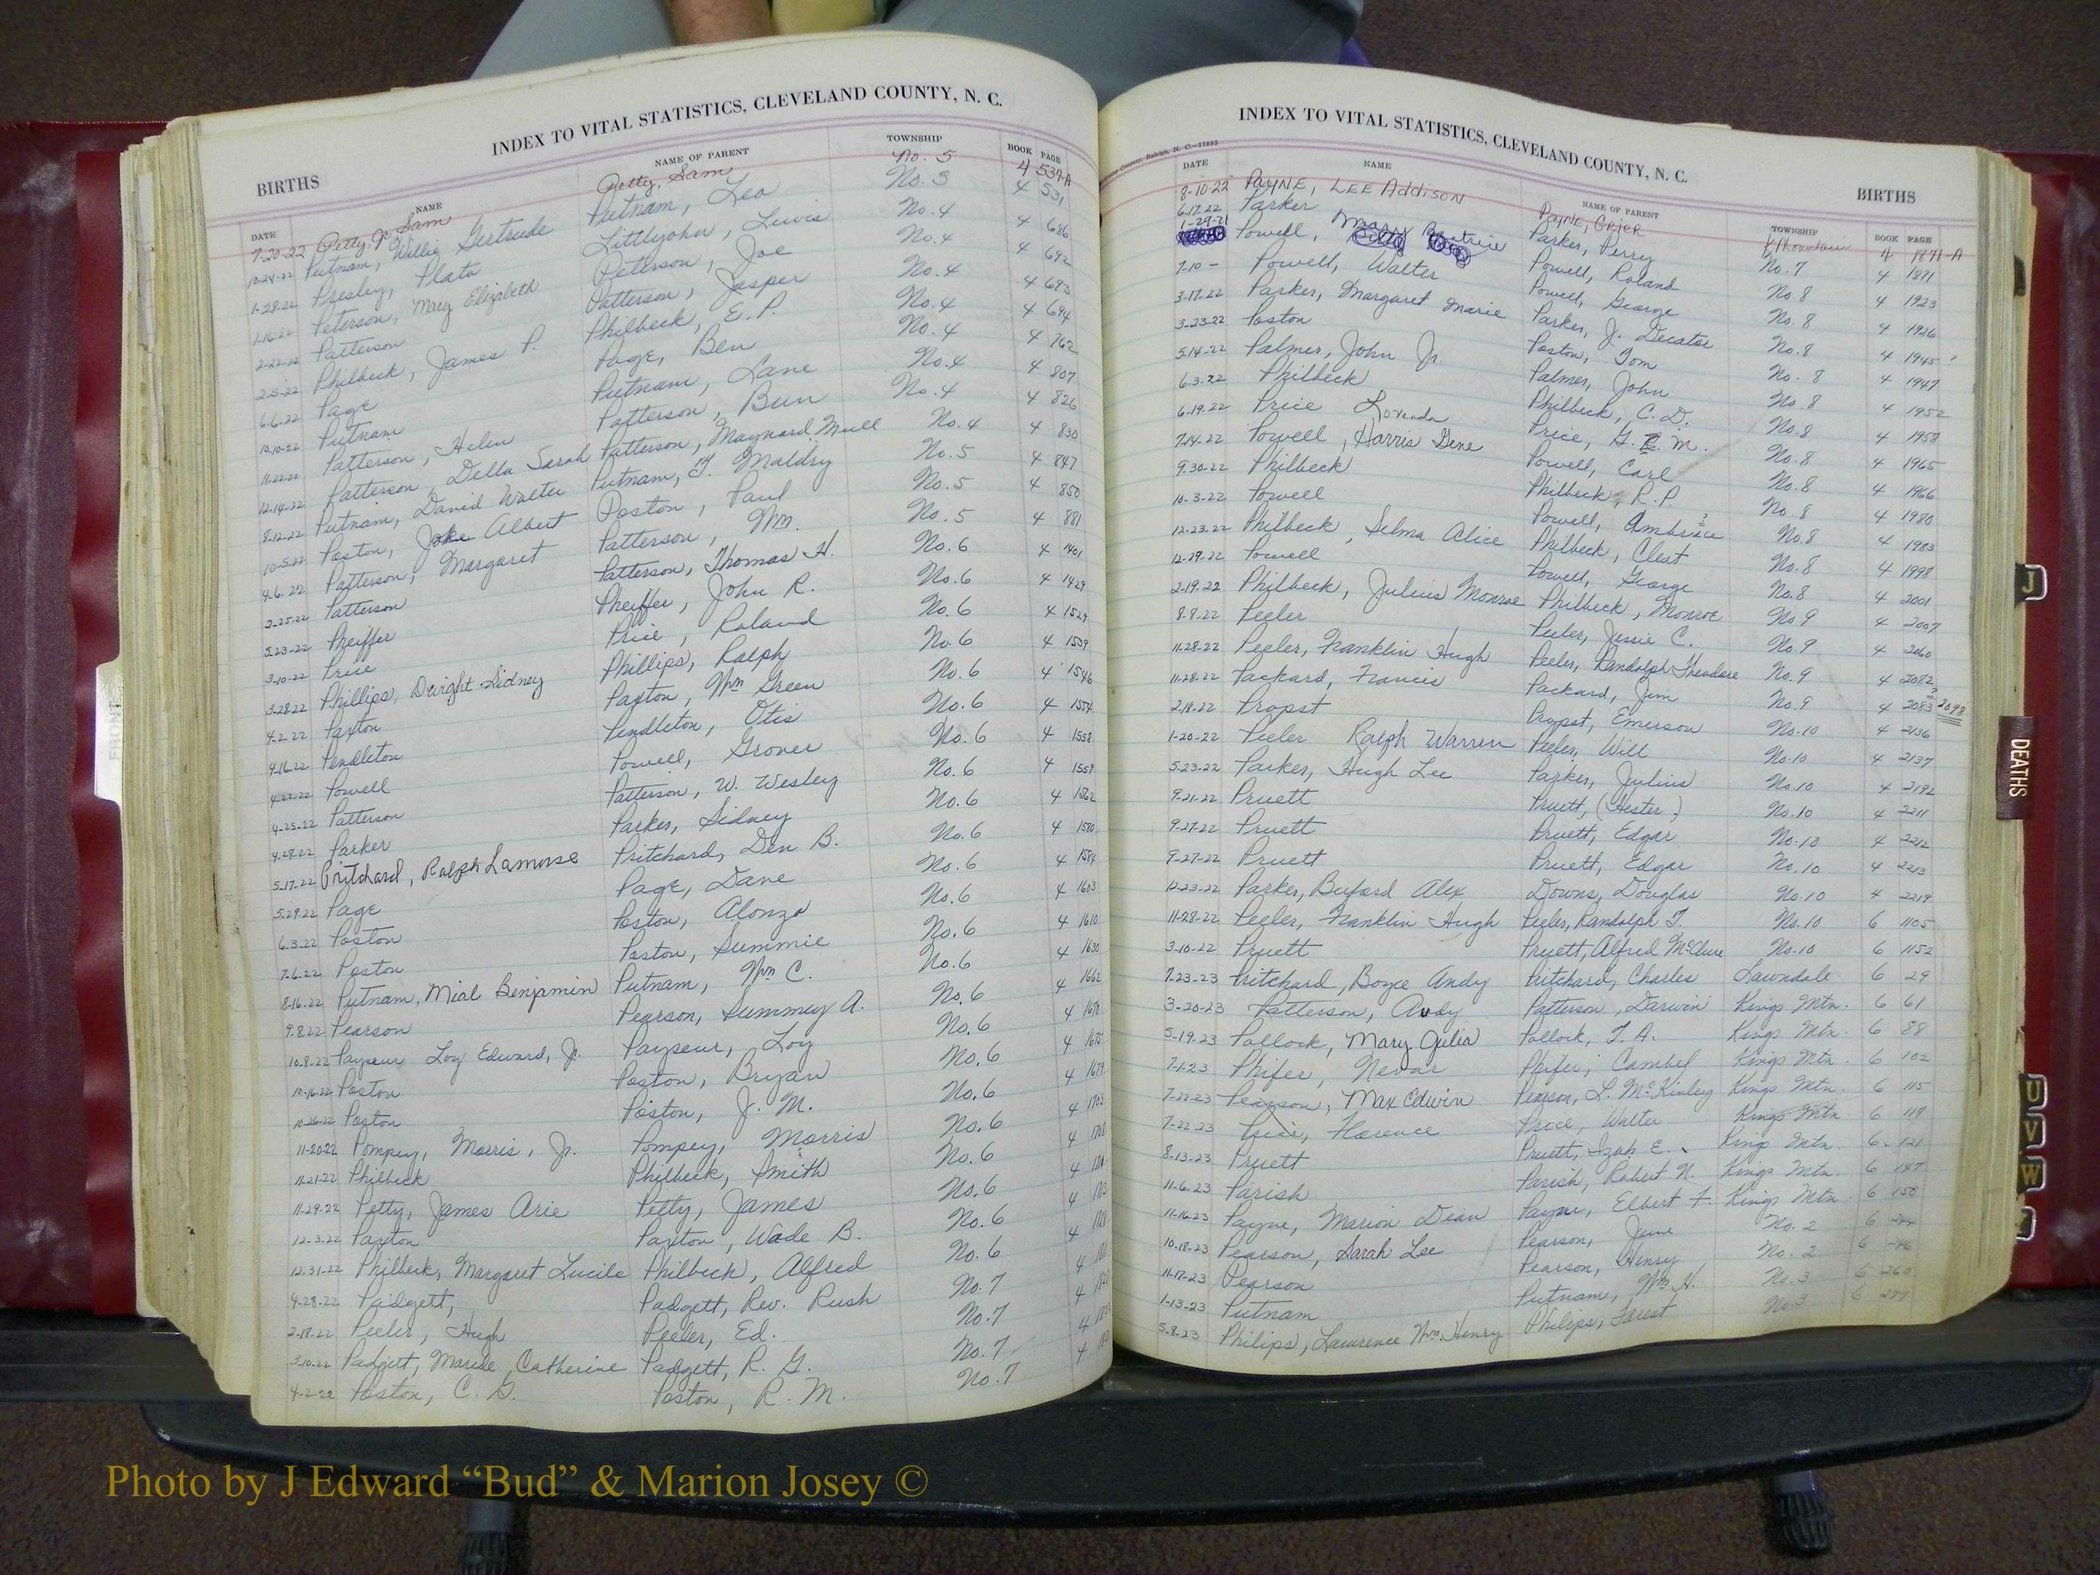 INDEX TO VITAL STATISTICS, CLEVELAND COUNTY, N. C.
BIRTHS
DATE NAME NAME OF PARENT TOWNSHIP BOOK PAGE
7-20-22 Petty, Jr Sam Petty, Sam No. 5 4 537-A
10-24-22 Putnam, Willie Gertrude Putnam, Leo No. 3 4 531
1-28-22 Presley, Plato Littlejohn, Lewis No. 4 4 686
1-16-22 Peterson, Mary Elizabeth Peterson, Joe No. 4 4 692
2-22-22 Patterson Patterson, Jasper No. 4 4 693
2-5-22 Philbeck, James P. Philbeck, E. P. No. 4 4 694
6-6-22 Page Page, Ben No. 4 4 762
10-10-22 Putnam Putnam, Lane No. 4 4 807
11-22-22 Patterson, Helen Patterson, Bun No. 4 4 826
12-14-22 Patterson, Della Sarah Patterson, Maynard Mull No. 4 4 830
8-12-22 Putnam, David Walter Putnam, T. Maldry No. 5 4 847
10-5-22 Poston, Jake Albert Poston, Paul No. 5 4 850
4-6-22 Patterson, Margaret Patterson, Wm. No. 5 4 881
2-25-22 Patterson Patterson, Thomas H. No. 6 4 1401
5-23-22 Pheiffer Pheiffer, John R. No. 6 4 1429
3-10-22 Price Price, Roland No. 6 4 1529
3-28-22 Phillips, Dwight Sidney Phillips, Ralph No. 6 4 1539
4-2-22 Paxton Paxton, Wm Green No. 6 4 1546
4-16-22 Pendleton Pendleton, Otis No. 6 4 1554
4-22-22 Powell Powell, Grover No. 6 4 1558
4-25-22 Patterson Patterson, W. Wesley No. 6 4 1559
4-28-22 Parker Parker, Sidney No. 6 4 1562
5-17-22 Pritchard, Ralph Lamorse Pritchard, Den B. No. 6 4 1580
5-29-22 Page Page, Dave No. 6 4 1584
6-3-22 Poston Poston, Alonzo No. 6 4 1603
7-6-22 Poston Poston, Summie No. 6 4 1610
8-16-22 Putnam, Mial Benjamin Putnam, Wm C. No. 6 4 1630
9-8-22 Pearson Pearson, Summey A. No. 6 4 1662
10-8-22 Payseur Loy Edward, Jr. Payseur, Loy No. 6 4
10-16-22 Poston Poston, Bryan No. 6 4
10-26-22 Poston Poston, J. M. No. 6 4
11-20-22 Pompey, Morris, Jr. Pompey, Morris No. 6 4
11-21-22 Philbeck Philbeck, Smith No. 6 4
11-29-22 Petty, James Arie Petty, James No. 6 4
12-3-22 Paxton Paxton, Wade B. No. 6 4
12-31-22 Philbeck, Margaret Lucile Philbeck, Alfred No. 6 4
4-28-22 Padgett, Padgett, Rev. Rush No. 7 4
2-18-22 Peeler, Hugh Peeler, Ed. No. 7 4
3-10-22 Padgett, Marie Catherine Padgett, R. G. No. 7 4
4-2-22 Poston, C. G. Poston, R. M. No. 7
INDEX TO VITAL STATISTICS, CLEVELAND COUNTY, N. C.
BIRTHS
Company, Raleigh, N. C.
DATE NAME NAME OF PARENT TOWNSHIP BOOK PAGE
8-10-22 PAYNE, LEE Addison PAYNE, GRIER K Mountain 4 1871-A
6-17-22 Parker Parker, Perry No. 7 4 1871
1-29-21 Powell, Mary Beatrice Powell, Roland No. 8 4 1923
7-10- Powell, Walter Powell, George No. 8 4 1926
3-17-22 Parker, Margaret Marie Parker, J. Decator No. 8 4 1945 ?
3-23-22 Poston Poston, Tom No. 8 4 1947
5-14-22 Palmer, John Jr. Palmer, John No. 8 4 1952
6-3-22 Philbeck Philbeck, C. D. No. 8 4 1958
6-19-22 Price Price, G. M. No. 8 4 1965
7-14-22 Powell, Harris Gene Powell, Carl No. 8 4 1966
9-30-22 Philbeck Philbeck, R. P. No. 8 4 1980
10-3-22 Powell Powell, Ambrose ? No. 8 4 1983
12-23-22 Philbeck, Selma Alice Philbeck, Cleat No. 8 4 1998
12-29-22 Powell Powell, George No. 8 4 2001
2-19-22 Philbeck, Julius Monroe Philbeck, Monroe No. 9 4 2007
8-8-22 Peeler Peeler, Jessie C. No. 9 4 2060
11-28-22 Peeler, Franklin Hugh Peeler, Randolph Theodore No. 9 4 2082
11-28-22 Packard, Francis Packard, Jim No. 9 4 2083 ? 2098
2-18-22 Propst Propst, Emerson No. 10 4 2136
1-20-22 Peeler Ralph Warren Peeler, Will No. 10 4 2137
5-23-22 Parker, Hugh Lee Parker, Julius No. 10 4 2192
9-21-22 Pruett Pruett, (Hester) No. 10 4 2211
9-27-22 Pruett Pruett, Edgar No. 10 4 2212
9-27-22 Pruett Pruett, Edgar No. 10 4 2213
12-23-22 Parker, Buford Alex Downs, Douglas No. 10 4 2219
11-28-22 Peeler, Franklin Hugh Peeler, Randolph T. No. 10 6 1105
3-10-22 Pruett Pruett, Alfred McClure No. 10 6 1152
7-23-23 Pritchard, Boyce Andy Pritchard, Charles Lawndale 6 29
3-20-23 Patterson, Audy Patterson, Darwin Kings Mtn. 6 61
5-19-23 Pollock, Mary Julia Pollock, T. A. Kings Mtn. 6 88
7-1-23 Phifer, Nevar Phifer, Cambel Kings Mtn. 6 102
7-22-23 Pearson, Max Edwin Pearson, L. McKinley Kings Mtn. 6 115
7-22-23 Price, Florence Price, Walter Kings Mtn. 6 117
8-13-23 Pruett Pruett, Izah E. Kings Mtn. 6 121
11-6-23 Parish Parish, Robert N. Kings Mtn. 6 147
11-16-23 Payne, Marion Dean Payne, Elbert F. Kings Mtn. 6 150
10-18-23 Pearson, Sarah Lee Pearson, June No. 2 6 244
11-17-23 Pearson Pearson, Henry No. 2 6 246
1-13-23 Putnam Putnam, Wm H. No. 3 6 260
5-8-23 Philips, Lawrence Wm. Henry Philips, Forest No. 3 6
J
DEATHS
U
V
W
Photo by J Edward “Bud” & Marion Josey ©